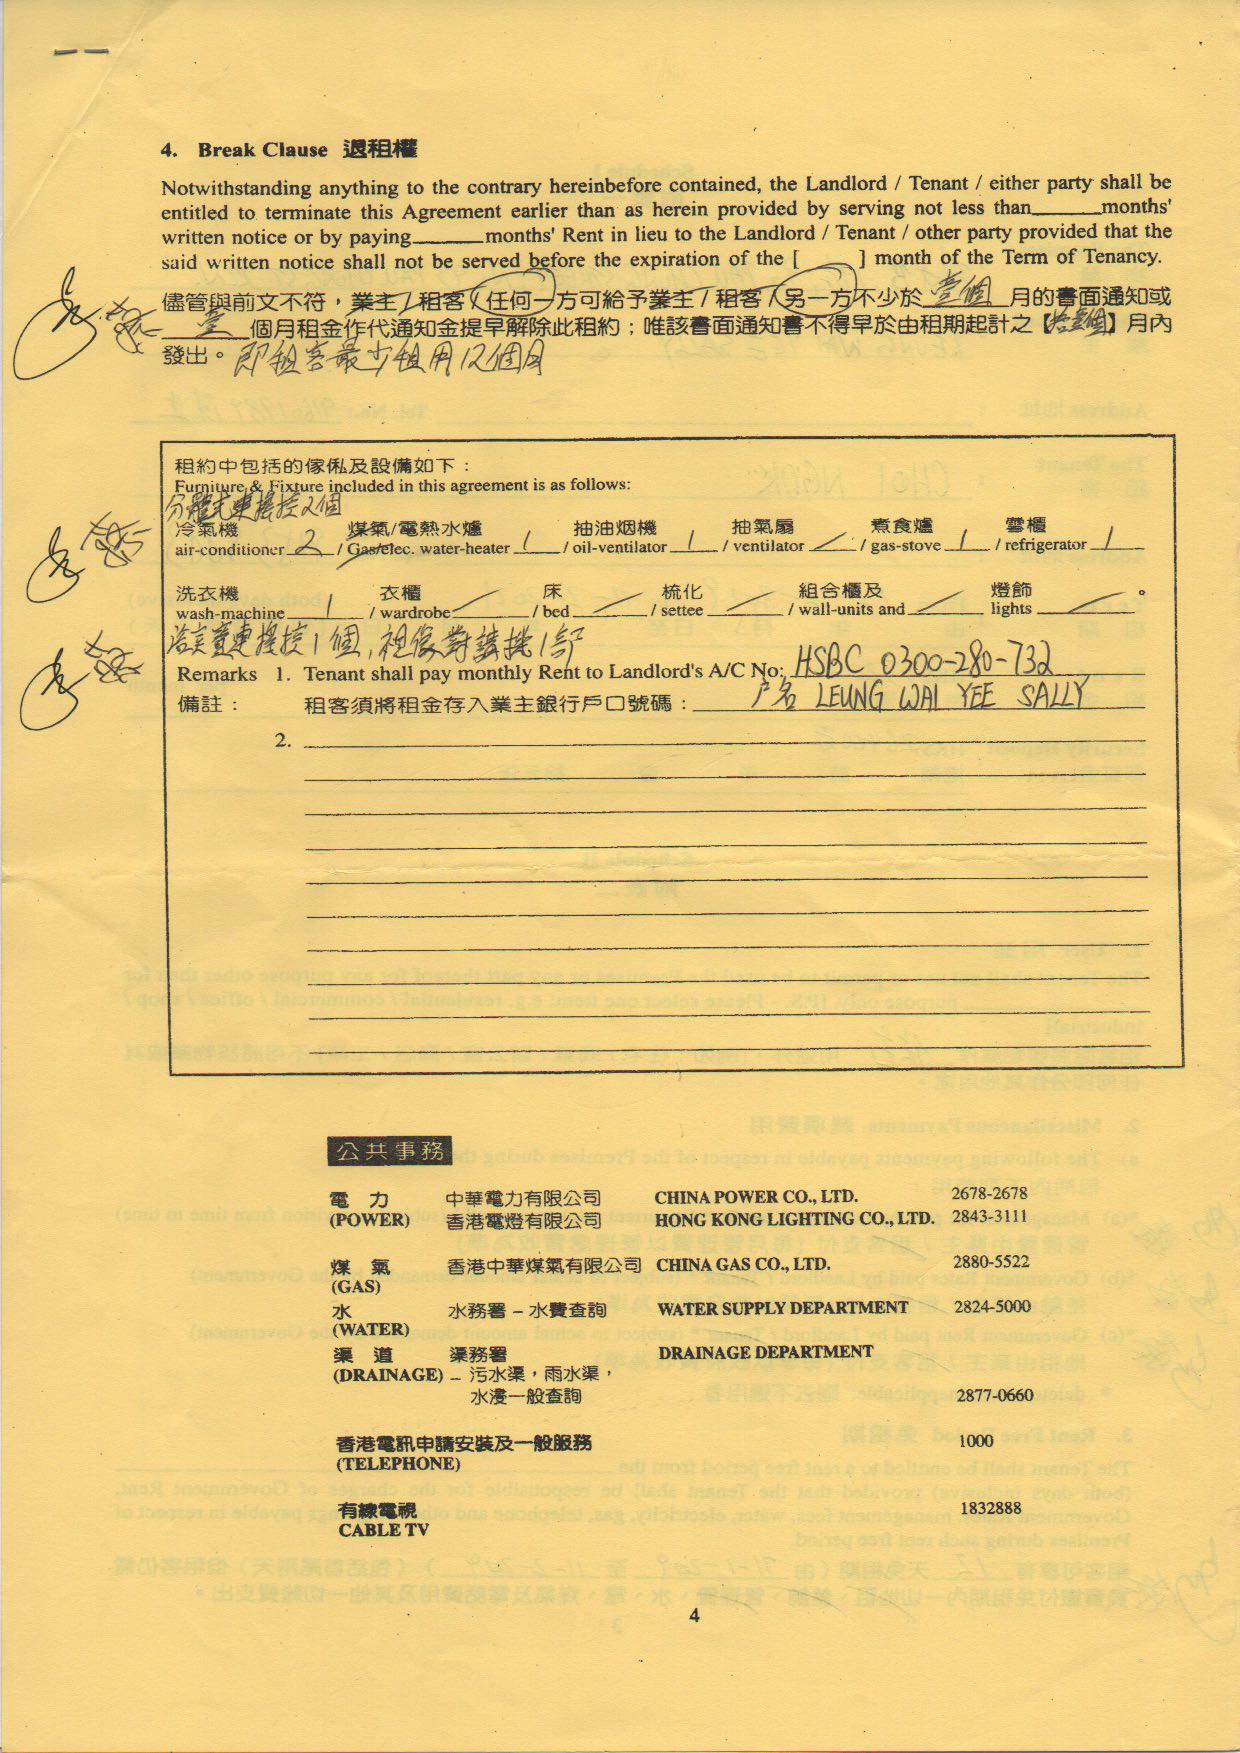 4. Break Clause 退租權
Notwithstanding anything to the contrary hereinbefore contained, the Landlord / Tenant / either party shall be
entitled to terminate this Agreement earlier than as herein provided by serving not less than______months'
written notice or by paying______months' Rent in lieu to the Landlord / Tenant / other party provided that the
said written notice shall not be served before the expiration of the [ ] month of the Term of Tenancy.
儘管與前文不符，業主 / 租客 / 任何一方可給予業主 / 租客 / 另一方不少於 壹個 月的書面通知或
壹 個月租金作代通知金提早解除此租約；唯該書面通知書不得早於由租期起計之【拾壹個】月內
發出。即租客最少租用12個月
租約中包括的傢俬及設備如下：
Furniture & Fixture included in this agreement is as follows:
分體式東搖控2個
冷氣機 煤氣/電熱水爐 抽油烟機 抽氣扇 煮食爐 雪櫃
air-conditioner 2 / Gas/elec. water-heater 1 / oil-ventilator 1 / ventilator / gas-stove 1 / refrigerator 1
洗衣機 衣櫃 床 梳化 組合櫃及 燈飾 。
wash-machine 1 / wardrobe / bed / settee / wall-units and lights
東搖控1個, 視像對講機1部
Remarks 1. Tenant shall pay monthly Rent to Landlord's A/C No: HSBC 0300-280-732
備註： 租客須將租金存入業主銀行戶口號碼： 户名 LEUNG WAI YEE SALLY
2.
公共事務
電 力 中華電力有限公司 CHINA POWER CO., LTD. 2678-2678
(POWER) 香港電燈有限公司 HONG KONG LIGHTING CO., LTD. 2843-3111
煤 氣 香港中華煤氣有限公司 CHINA GAS CO., LTD. 2880-5522
(GAS)
水 水務署 – 水費查詢 WATER SUPPLY DEPARTMENT 2824-5000
(WATER)
渠 道 渠務署 DRAINAGE DEPARTMENT
(DRAINAGE) – 污水渠，雨水渠，
水浸一般查詢 2877-0660
香港電訊申請安裝及一般服務 1000
(TELEPHONE)
有線電視 1832888
CABLE TV
4